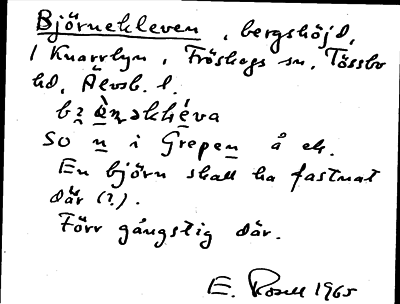 Björnekleven, bergshöjd,
i Knarrbyn, Fröskogs sn, Tössbo
hd, Älvsb. l.
SO n i Grepen å ek.
En björn skall ha fastnat
där (?).
Förr gångstig där.
E. Rosell 1965